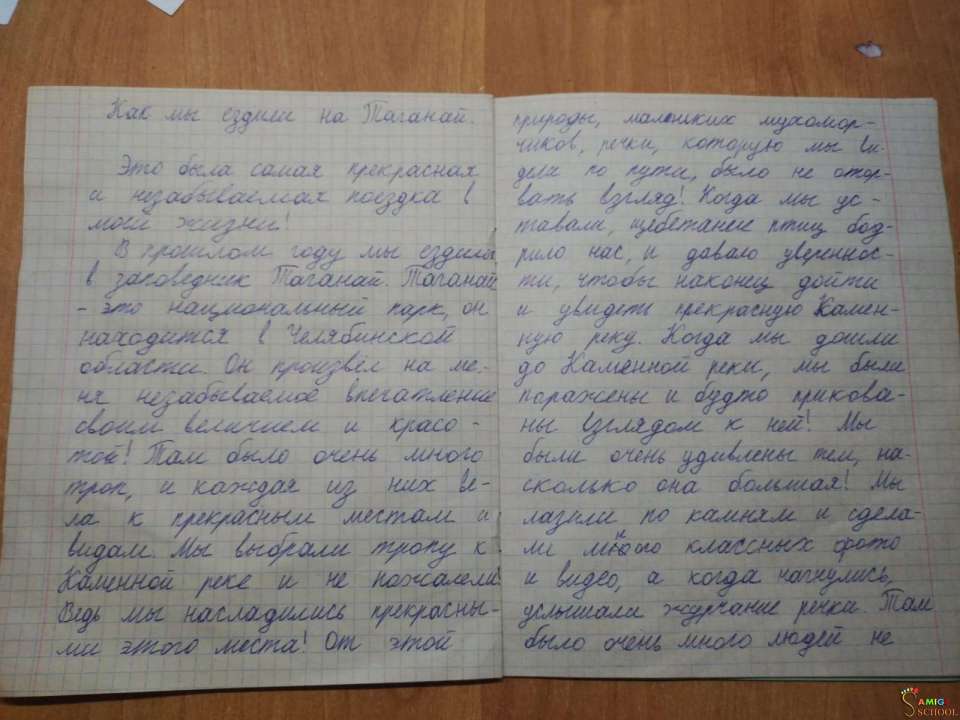 Как мы ездили на Таганай.
Это была самая прекрасная
и незабываемая поездка в
моей жизни!
В прошлом году мы ездили
в заповедник Таганай. Таганай
- это национальный парк, он
находится в Челябинской
области. Он произвёл на ме-
ня незабываемое впечатление
своим величием и красо-
той! Там было очень много
троп, и каждая из них ве-
ла к прекрасным местам и
видам. Мы выбрали тропу к
Каменной реке и не пожалели
Ведь мы насладились прекрасны-
ми этого места! От этой
природы, маленких мухомор-
чиков, речки, которую мы ви-
дели по пути, было не отор-
вать взгляд! Когда мы ус-
тавали, щебетание птиц бод-
рило нас, и давало увереннос-
ти, чтобы наконец дойти
и увидеть прекрасную Камен-
ную реку. Когда мы дошли
до Каменной реки, мы были
поражены и будто прикова-
ны взглядом к ней! Мы
были очень удивлены тем, на-
сколько она большая! Мы
лазили по камням и сдела-
ли много классных фото
и видео, а когда нагнулись,
услышали журчание речки. Там
было очень много людей не
AMIG
SCHOOL